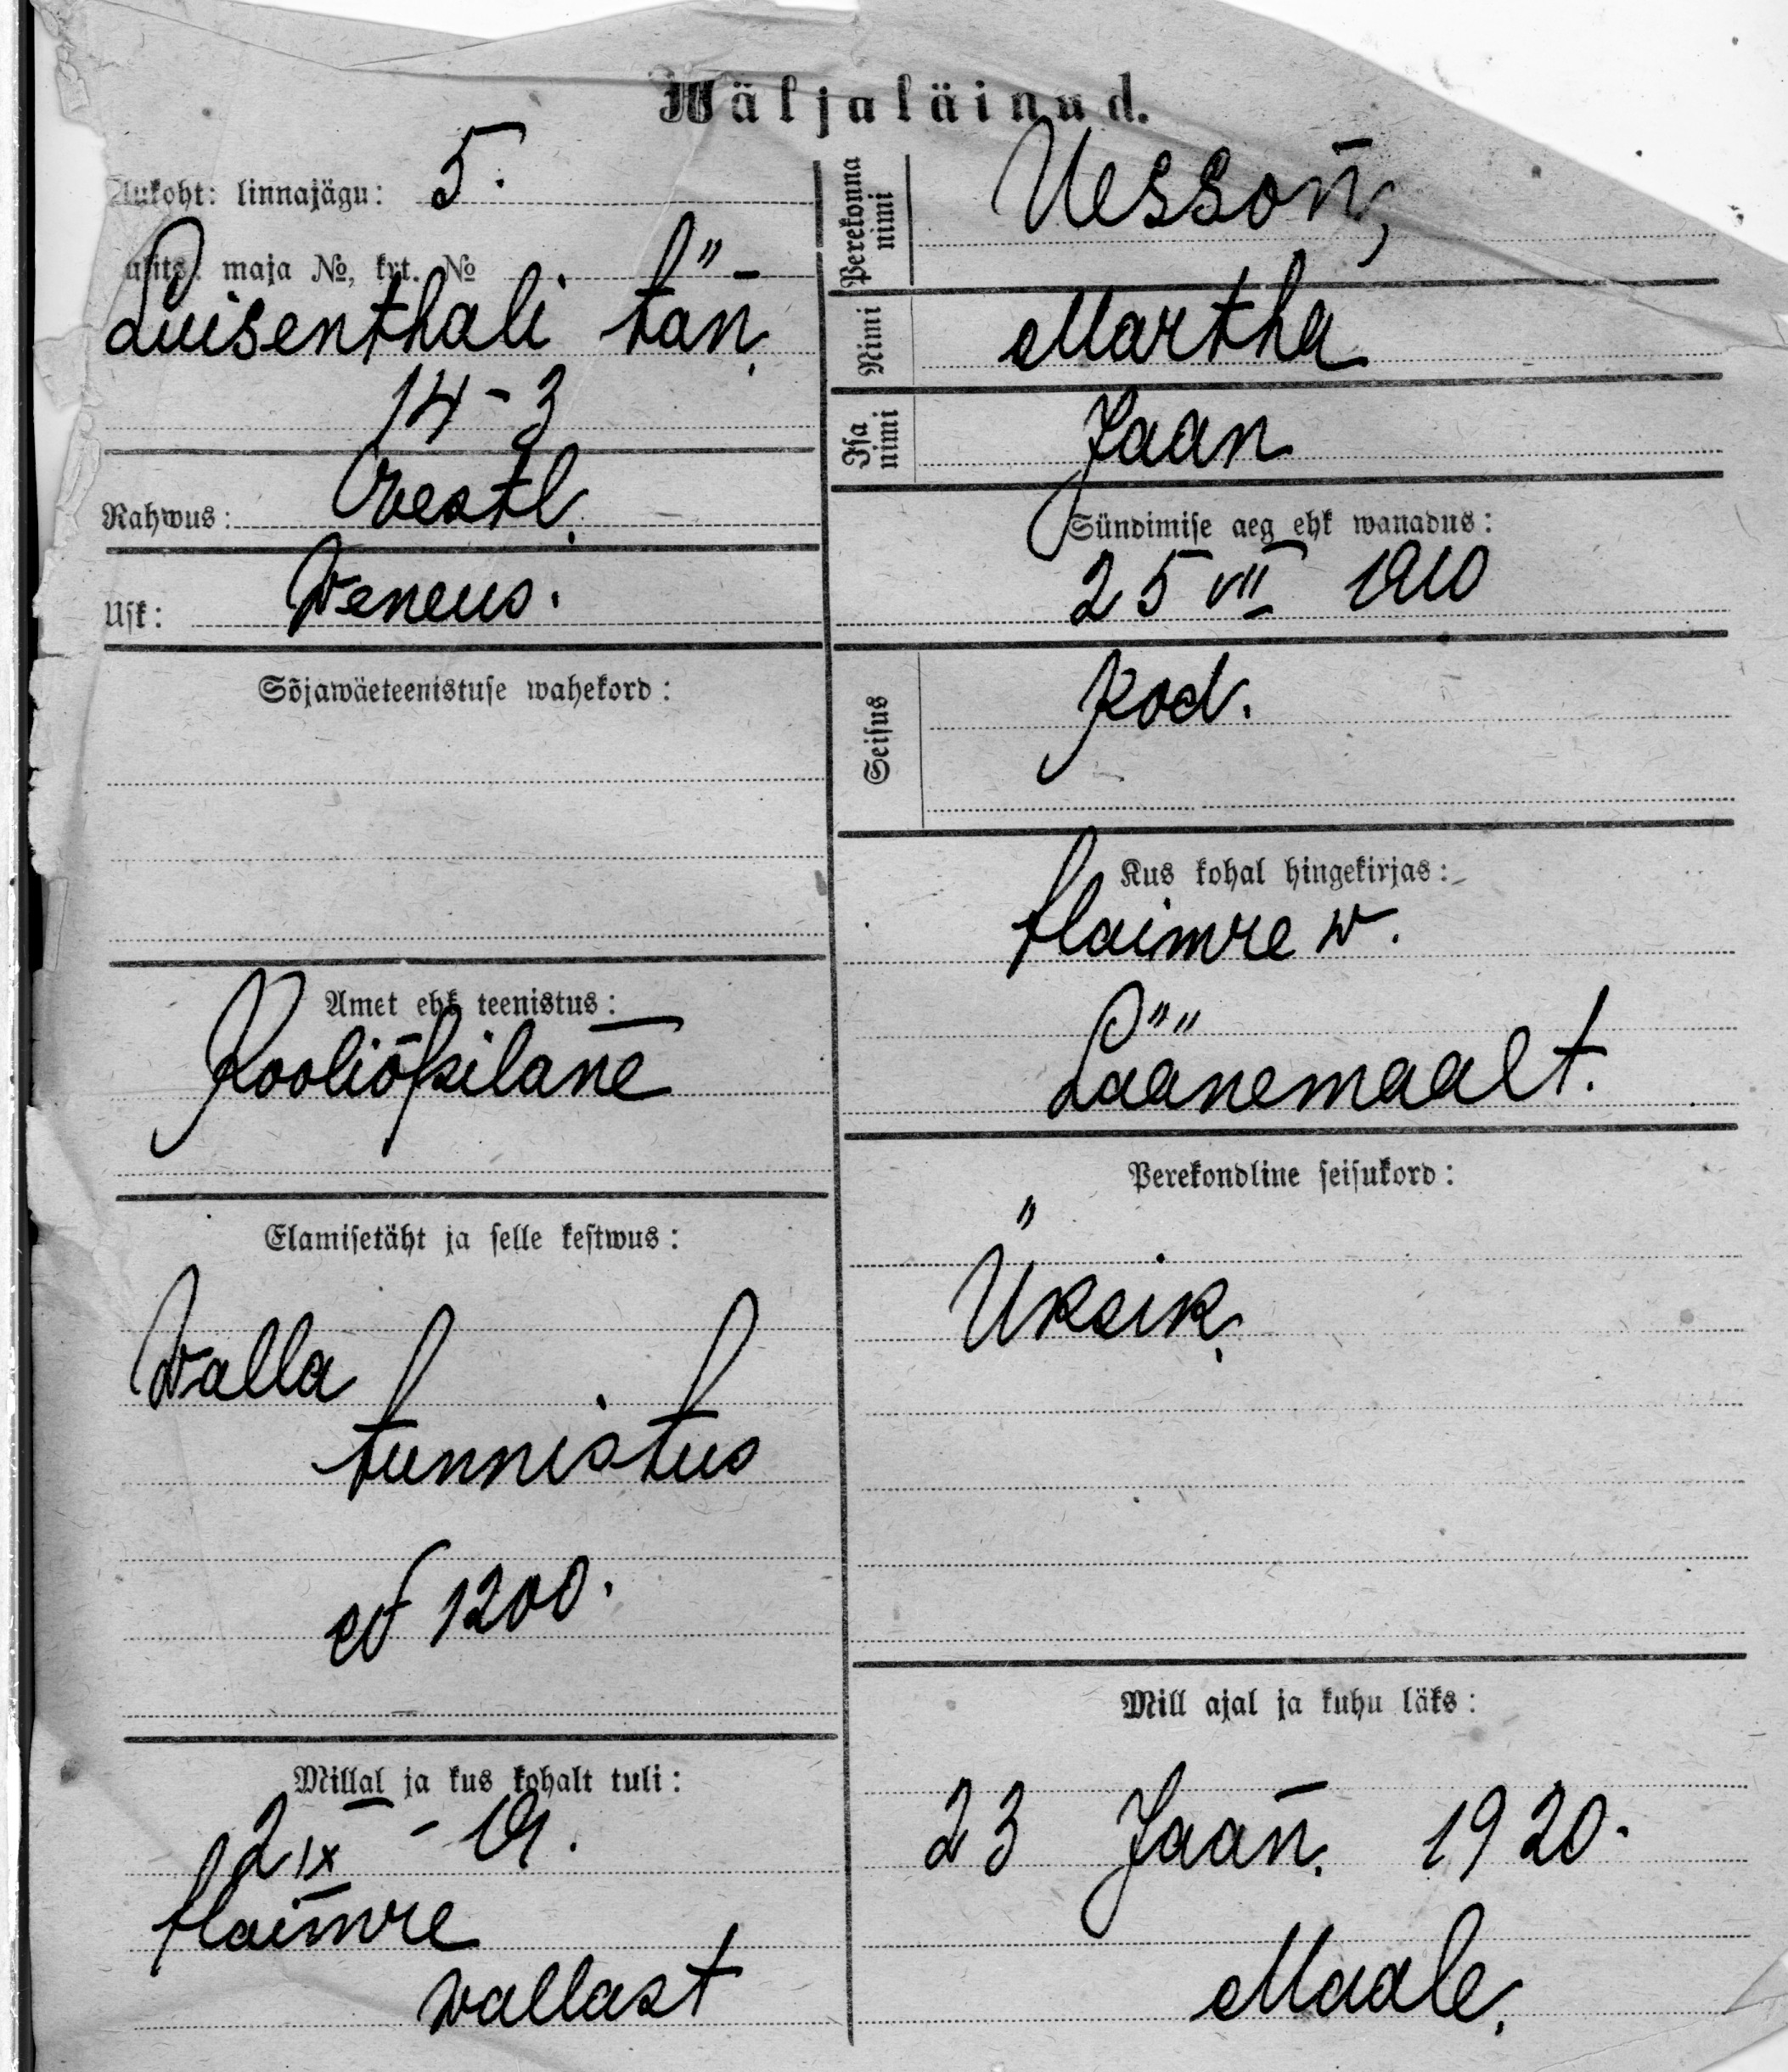 Wäljaläinud.
Aukoht: linnajägu: 5.
uulits, maja №, krt. №
Luisenthali tän.
14-3
Rahwus: Eestl.
Usk: Weneus.
Sõjawäeteenistuse wahekord:
Amet ehk teenistus:
Kooliõpilane
Elamisetäht ja selle kestwus:
Walla
tunnistus
№ 1200.
Millal ja kus kohalt tuli:
2 IX - 19.
Haimre
wallast
Perekonna nimi
Uesson,
Nimi
Martha
Isa nimi
Jaan
Sündimise aeg ehk wanadus:
25 VII 1910
Seisus
Kod.
Kus kohal hingekirjas:
Haimre w.
Läänemaalt.
Perekondline seisukord:
Üksik.
Mill ajal ja kuhu läks:
23 Jaan. 1920.
Maale.